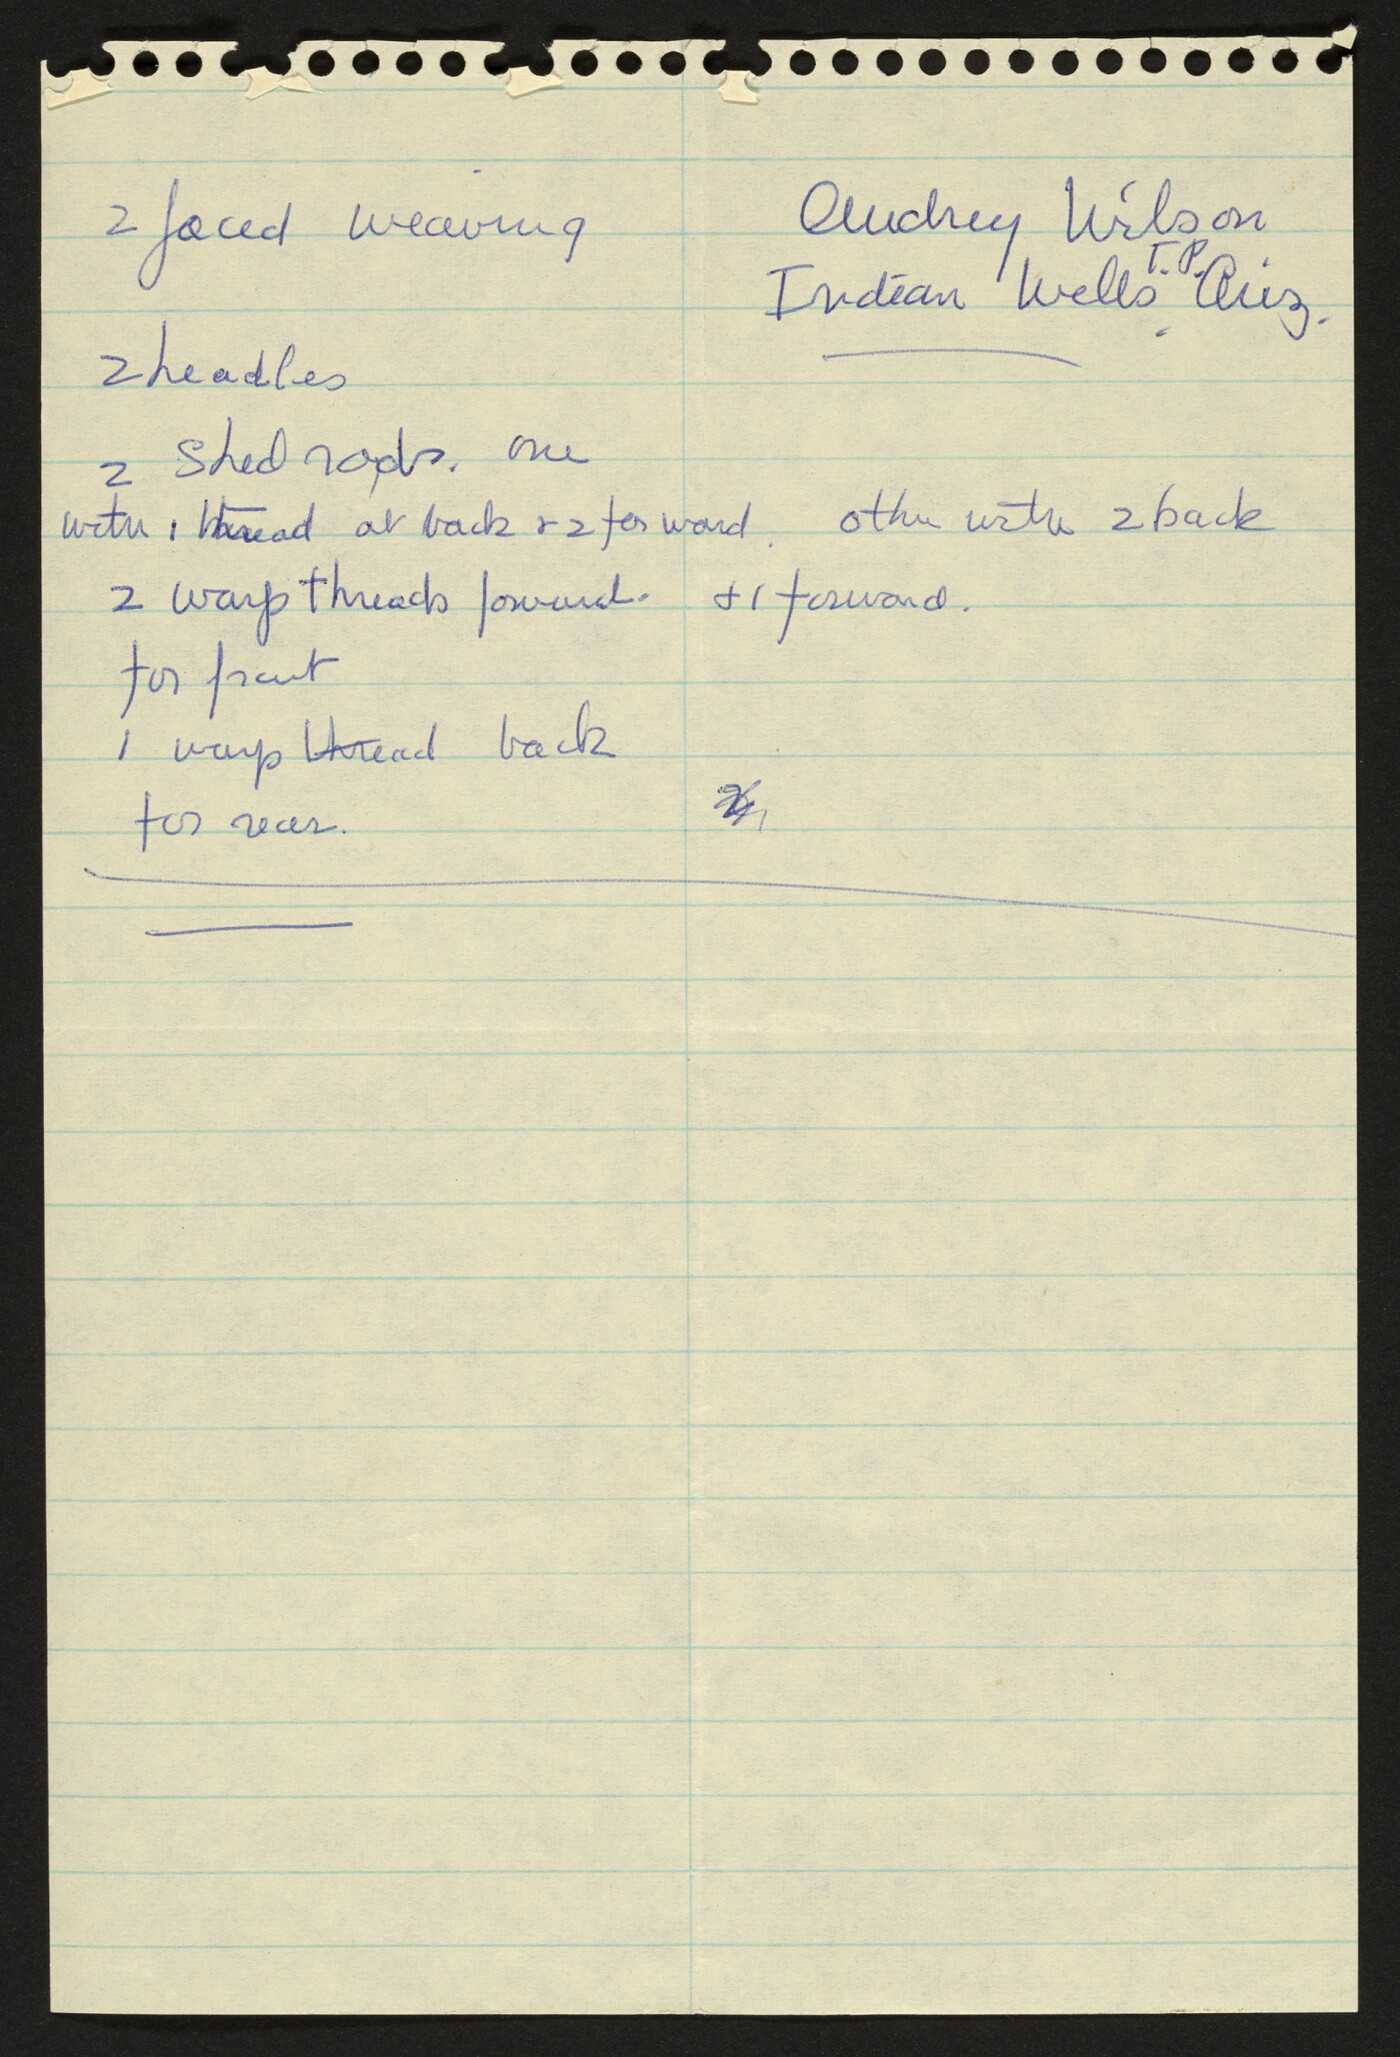 2 faced weaving
Audrey Wilson
Indian Wells T.P. Ariz.
2 headles
2 Shed rods. One
with 1 thread at back & 2 forward. other with 2 back
2 warp threads forward. & 1 forward.
for front
1 warp thread back
for rear.